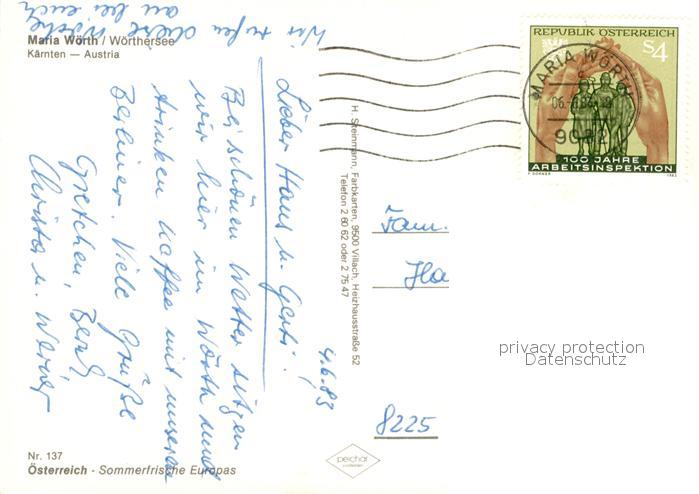 Maria Wörth / Wörthersee
Kärnten — Austria
4.6.83
Lieber Hans u. Gerti!
Bei schönem Wetter sitzen
wir hier in Wörth und
trinken Kaffee mit unseren
Berliner. Viele Grüße
Gretchen, Bernd
Christa u. Werner
Wir rufen diese Woche
an bei euch
H. Steinmann, Farbkarten, 9500 Villach, Heizhausstraße 52
Telefon 2 60 62 oder 2 75 47
REPUBLIK ÖSTERREICH
S4
100 JAHRE
ARBEITSINSPEKTION
1983
MARIA WÖRTH
Fam.
Ha
8225
privacy protection
Datenschutz
Nr. 137
Österreich - Sommerfrische Europas